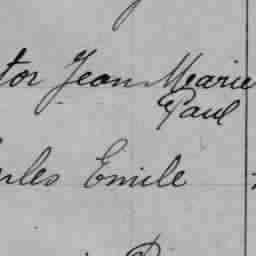 tor Jean Marie
Paul
rles Emile